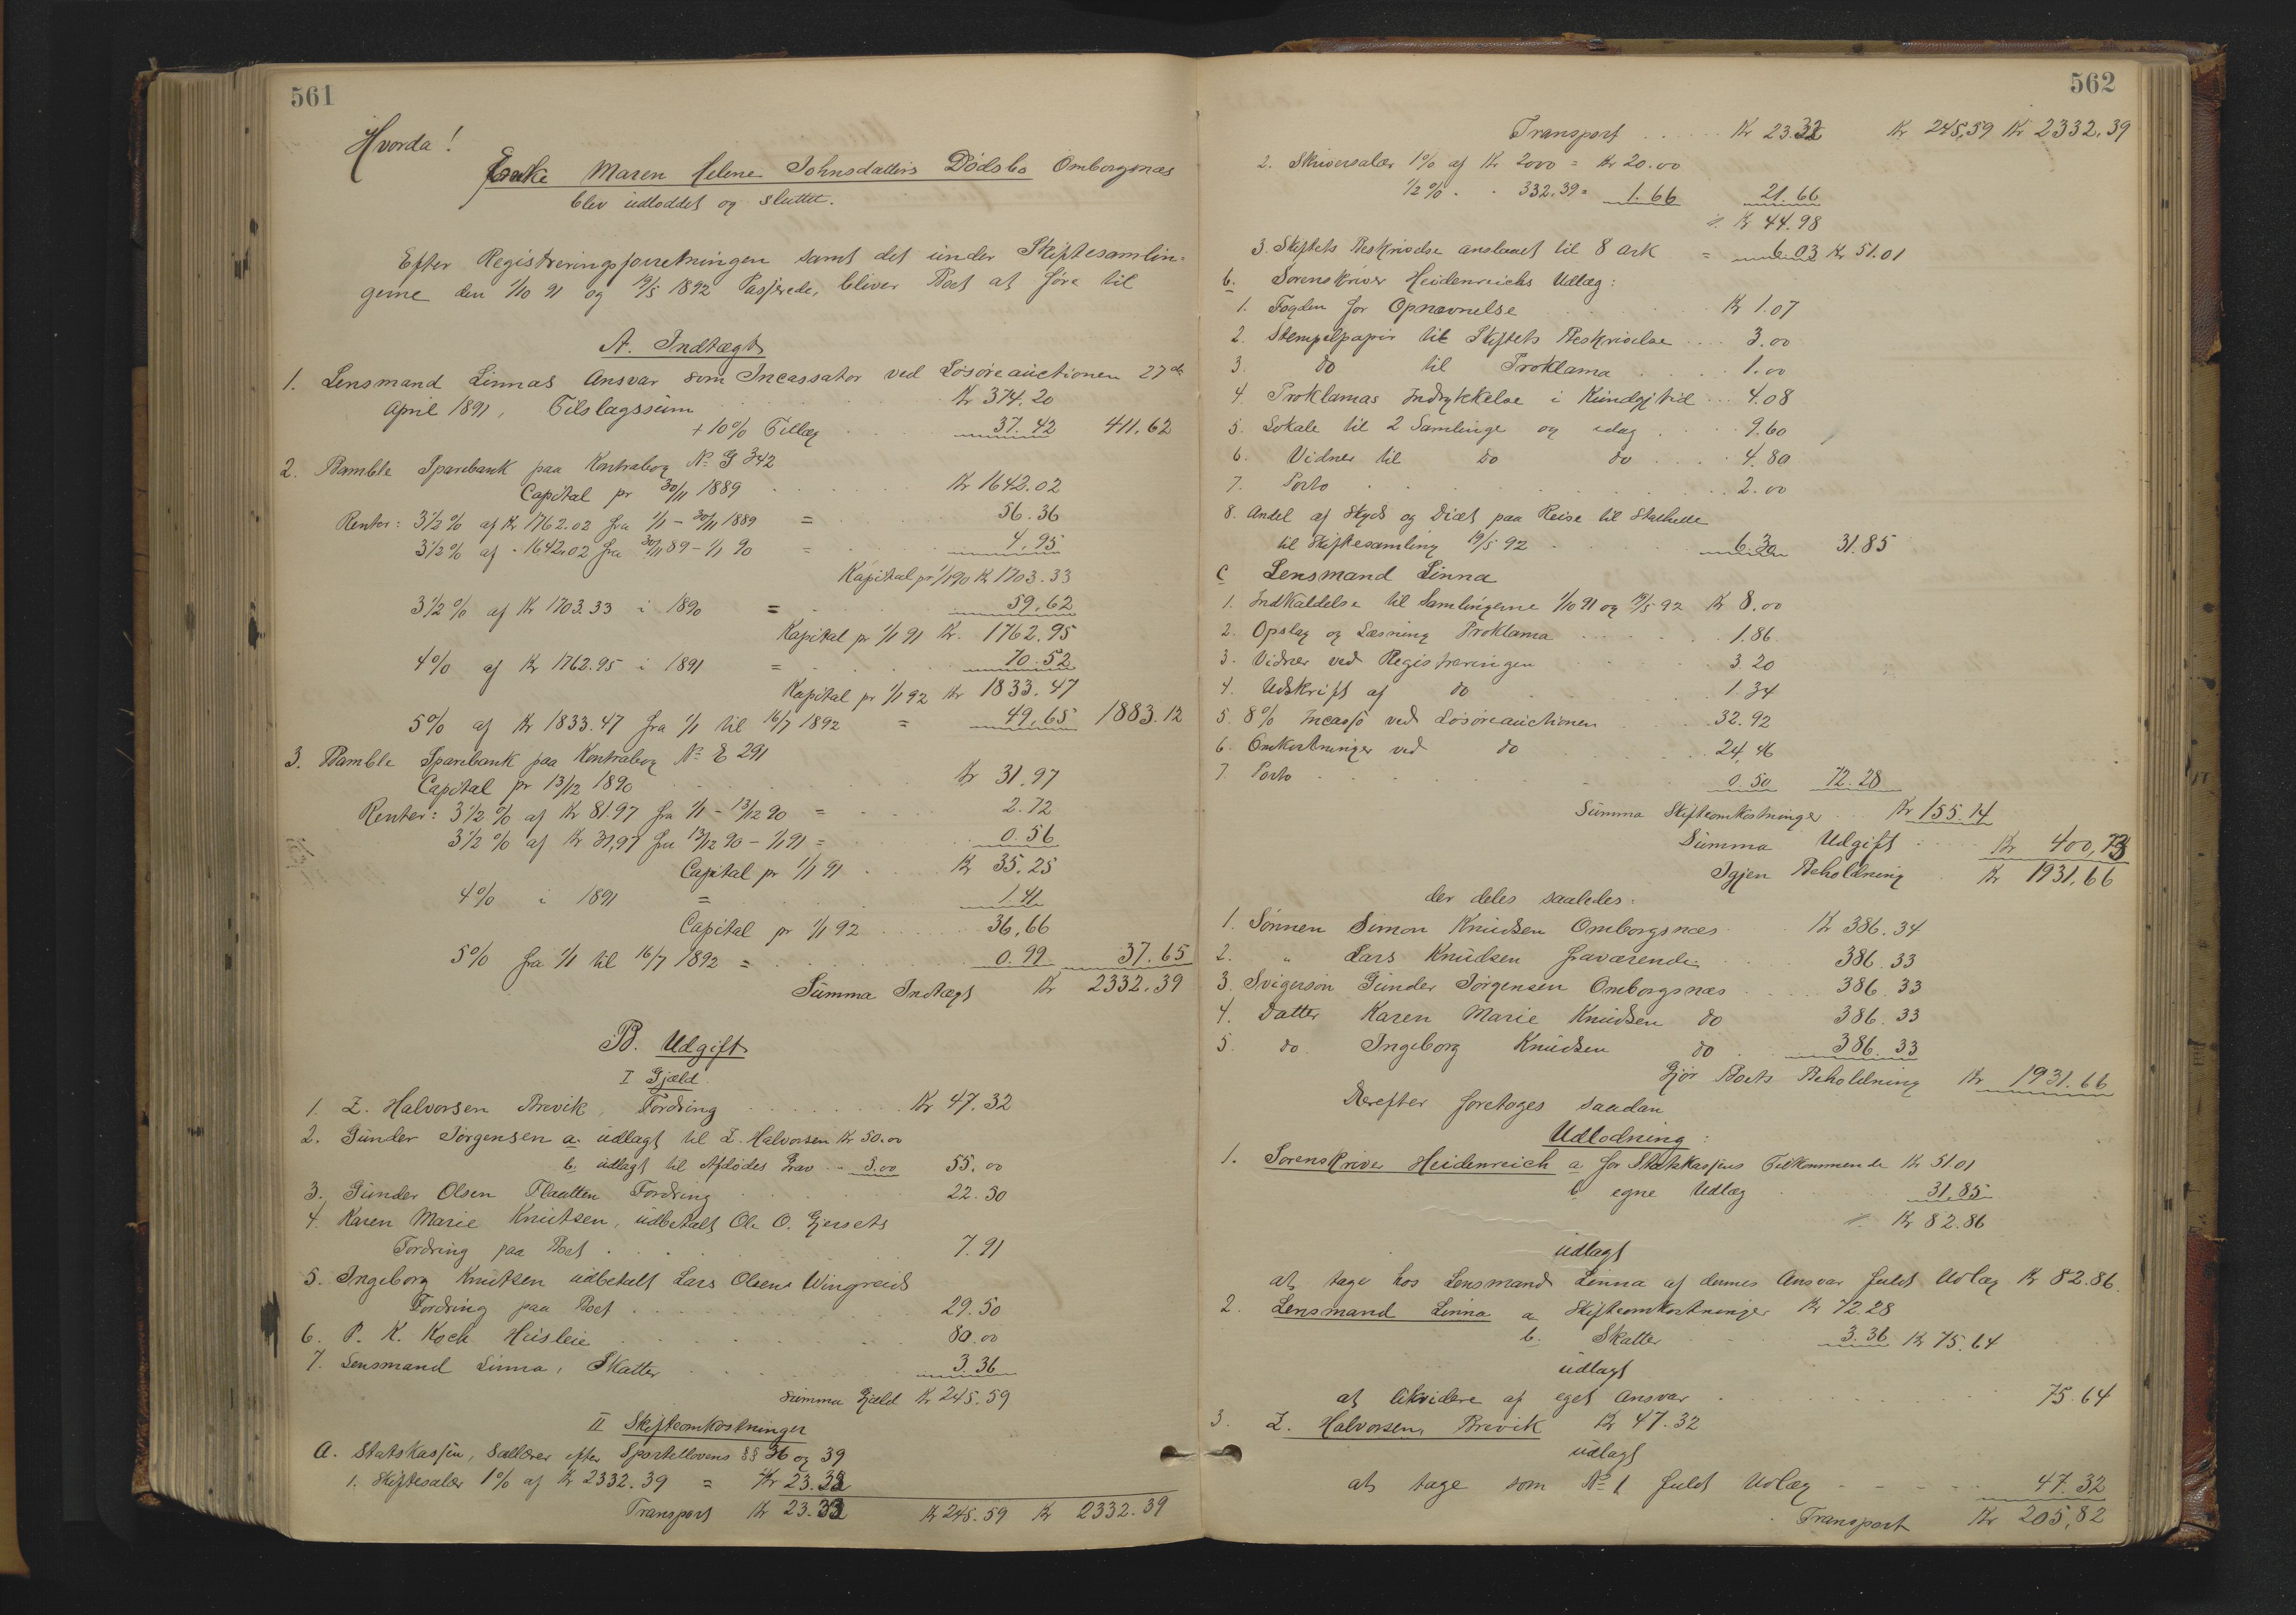 561
Hvorda!
Enke Maren Helene Johnsdatters Dødsbo Omborgsnæs
blev udloddet og sluttet.
Efter Registreringsforretningen samt det under Skiftesamlin-
gerne den 1/10 91 og 19/5 1892 Passerede, bliver Boet at føre til
A. Indtægt
1. Lensmand Linnas Ansvar som Incassator ved Løsøreauctionen 27de
April 1891, Tilslagssum Kr 374.20
+ 10% Tillæg 37.42 411.62
2. Bamble Sparebank paa Kontrabog No G 342
Capital pr 30/11 1889 Kr 1642.02
Renter: 3 1/2 % af Kr 1762.02 fra 1/1 - 30/11 1889 = 56.36
3 1/2 % af " 1642.02 fra 30/11 89 - 1/1 90 = 4.95
Kapital pr 1/1 90 Kr 1703.33
3 1/2 % af Kr 1703.33 i 1890 = 59.62
Kapital pr 1/1 91 Kr. 1762.95
4% af Kr 1762.95 i 1891 = 70.52
Kapital pr 1/1 92 Kr 1833.47
5% af Kr 1833.47 fra 1/1 til 16/7 1892 = 49.65 1883.12
3. Bamble Sparebank paa Kontrabog No E 291
Capital pr 13/12 1890 Kr 31.97
Renter: 3 1/2 % af Kr 81.97 fra 1/1 - 13/12 90 = 2.72
3 1/2 % af Kr 31,97 fra 13/12 90 - 1/1 91 = 0.56
Capital pr 1/1 91 Kr 35.25
4% i 1891 = 1.41
Capital pr 1/1 92 36,66
5% fra 1/1 til 16/7 1892 = 0.99 37.65
Summa Indtægt Kr 2332.39
B. Udgift
I Gjæld.
1. Z. Halvorsen Brevik, Fordring Kr 47.32
2. Gunder Jørgensen a. udlagt til Z. Halvorsen Kr 50.00
b. udlagt til Afdødes Grav " 5.00 55.00
3. Gunder Olsen Plaatten Fordring 22.50
4. Karen Marie Knutsen, udbetalt Ole O. Gjersets
Fordring paa Boet 7.91
5. Ingeborg Knutsen udbetalt Lars Olsens Wingreids
Fordring paa Boet 29.50
6. P. K. Koch Husleie 80.00
7. Lensmand Linna, Skatter 3.36
Summa Gjæld Kr 245.59
II Skifteomkostninger
A. Statskassen, Sallærer efter Sportellovens §§ 36 og 39
1. Skiftesalær 1% af Kr 2332.39 = Kr 23.32
Transport Kr 23.32 Kr 245.59 Kr 2332.39
562
Transport Kr 23.32 Kr 245,59 Kr 2332,39
2. Skriversalær 1% af Kr 2000 = Kr 20.00
1/2 % " " 332.39 = 1.66 21.66
Kr 44.98
3. Skiftets Beskrivelse anslaaet til 8 Ark = 6.03 Kr 51.01
b. Sorenskriver Heidenreichs Udlæg:
1. Fogden for Opnævnelse Kr 1.07
2. Stempelpapir til Skiftets Beskrivelse 3.00
3. do til Proklama 1.00
4 Proklamas Indrykkelse i Kundgjtid 4.08
5. Lokale til 2 Samlinge og idag 9.60
6. Vidner til do do 4.80
7. Porto 2.00
8. Andel af Skyds og Diæt paa Reise til Stathelle
til Skiftesamling 19/5 92 6.30 31.85
C Lensmand Linna
1. Indkaldelse til Samlingerne 1/10 91 og 19/5 92 Kr 8.00
2. Opslag og Læsning Proklama 1.86
3. Vidner ved Registreringen 3.20
4. Udskrift af do 1.34
5. 8% Incasso ved Løsøreauctionen 32.92
6. Omkostninger ved do 24,46
7. Porto 0.50 72.28
Summa Skifteomkostninger Kr 155.14
Summa Udgift Kr 400,73
Igjen Beholdning Kr 1931.66
der deles saaledes:
1. Sønnen Simon Knudsen Omborgsnæs Kr 386.34
2. " Lars Knudsen fraværende 386.33
3. Svigersøn Gunder Jørgensen Omborgsnæs 386.33
4. Datter Karen Marie Knudsen do 386.33
5. do. Ingeborg Knudsen do 386.33
Gjør Boets Beholdning Kr 1931.66
Derefter foretoges saadan
Udlodning:
1. Sorenskriver Heidenreich a for Statskassens Tilkommende Kr 51.01
b egne Udlæg 31.85
Kr 82.86
udlagt
at tage hos Lensmand Linna af dennes Ansvar fuldt Udlæg Kr 82.86.
2. Lensmand Linna a Skifteomkostninger Kr 72.28
b. Skatter 3.36 Kr 75.64
udlagt
at likvidere af eget Ansvar 75.64
3. Z. Halvorsen, Brevik Kr 47.32
udlagt
at tage som No 1 fuldt Udlæg 47.32
Transport Kr 205,82